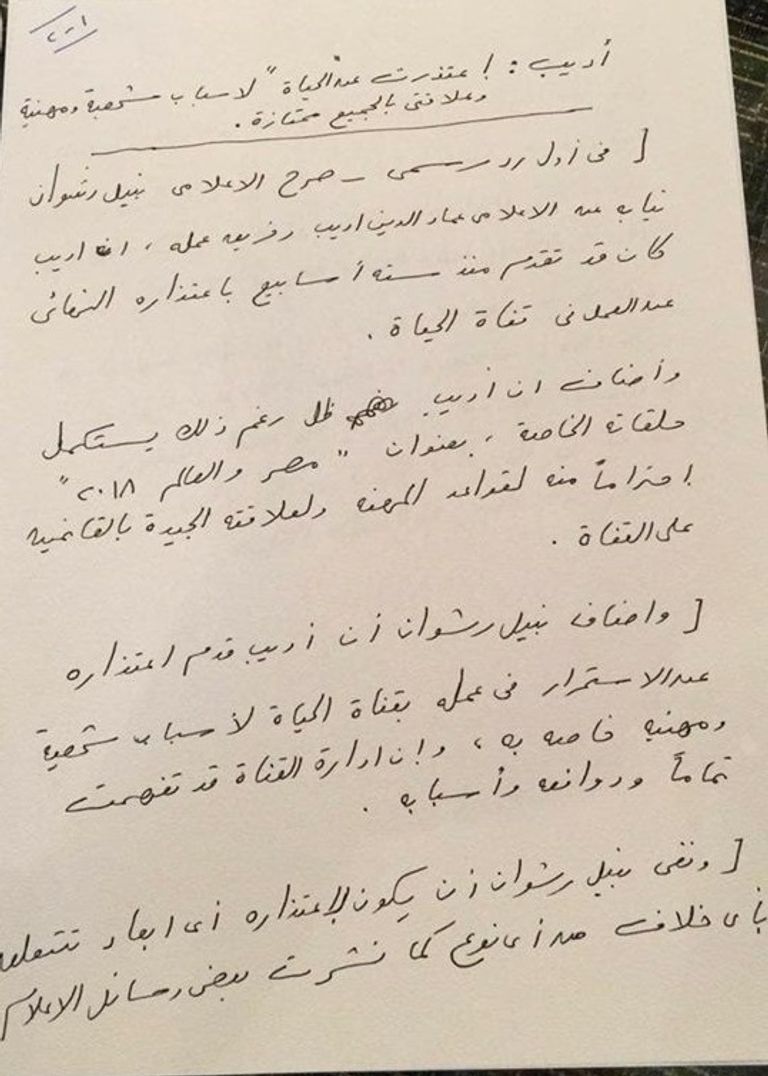 ١-٢
أديب : اعتذرت عن "الحياة" لأسباب شخصية ومهنية
وعلاقتى بالجميع ممتازة .
[ فى أول رد رسمى – صرح الاعلامى نبيل رشوان
نيابه عن الاعلامى عماد الدين اديب وفريق عمله ، ان اديب
كان قد تقدم منذ ستة أسابيع باعتذاره النهائى
عن العمل فى قناة الحياة .
وأضاف ان أديب ظل رغم ذلك يستكمل
حلقاته الخاصة ، بعنوان " مصر والعالم ٢٠١٨ "
إحتراماً منه لقواعد المهنه ولعلاقته الجيدة بالقائمين
على القناة .
[ واضاف نبيل رشوان أن أديب قدم اعتذاره
عن الاستمرار فى عمله بقناة الحياة لأسباب شخصية
ومهنيه خاصه به ، وإن ادارة القناة قد تفهمت
تماماً ودوافعه وأسبابه .
[ ونفى نبيل رشوان أن يكون لإعتذاره أى ابعاد تتعلق
بأى خلاف من أى نوع كما نشرت بعض وسائل الاعلام